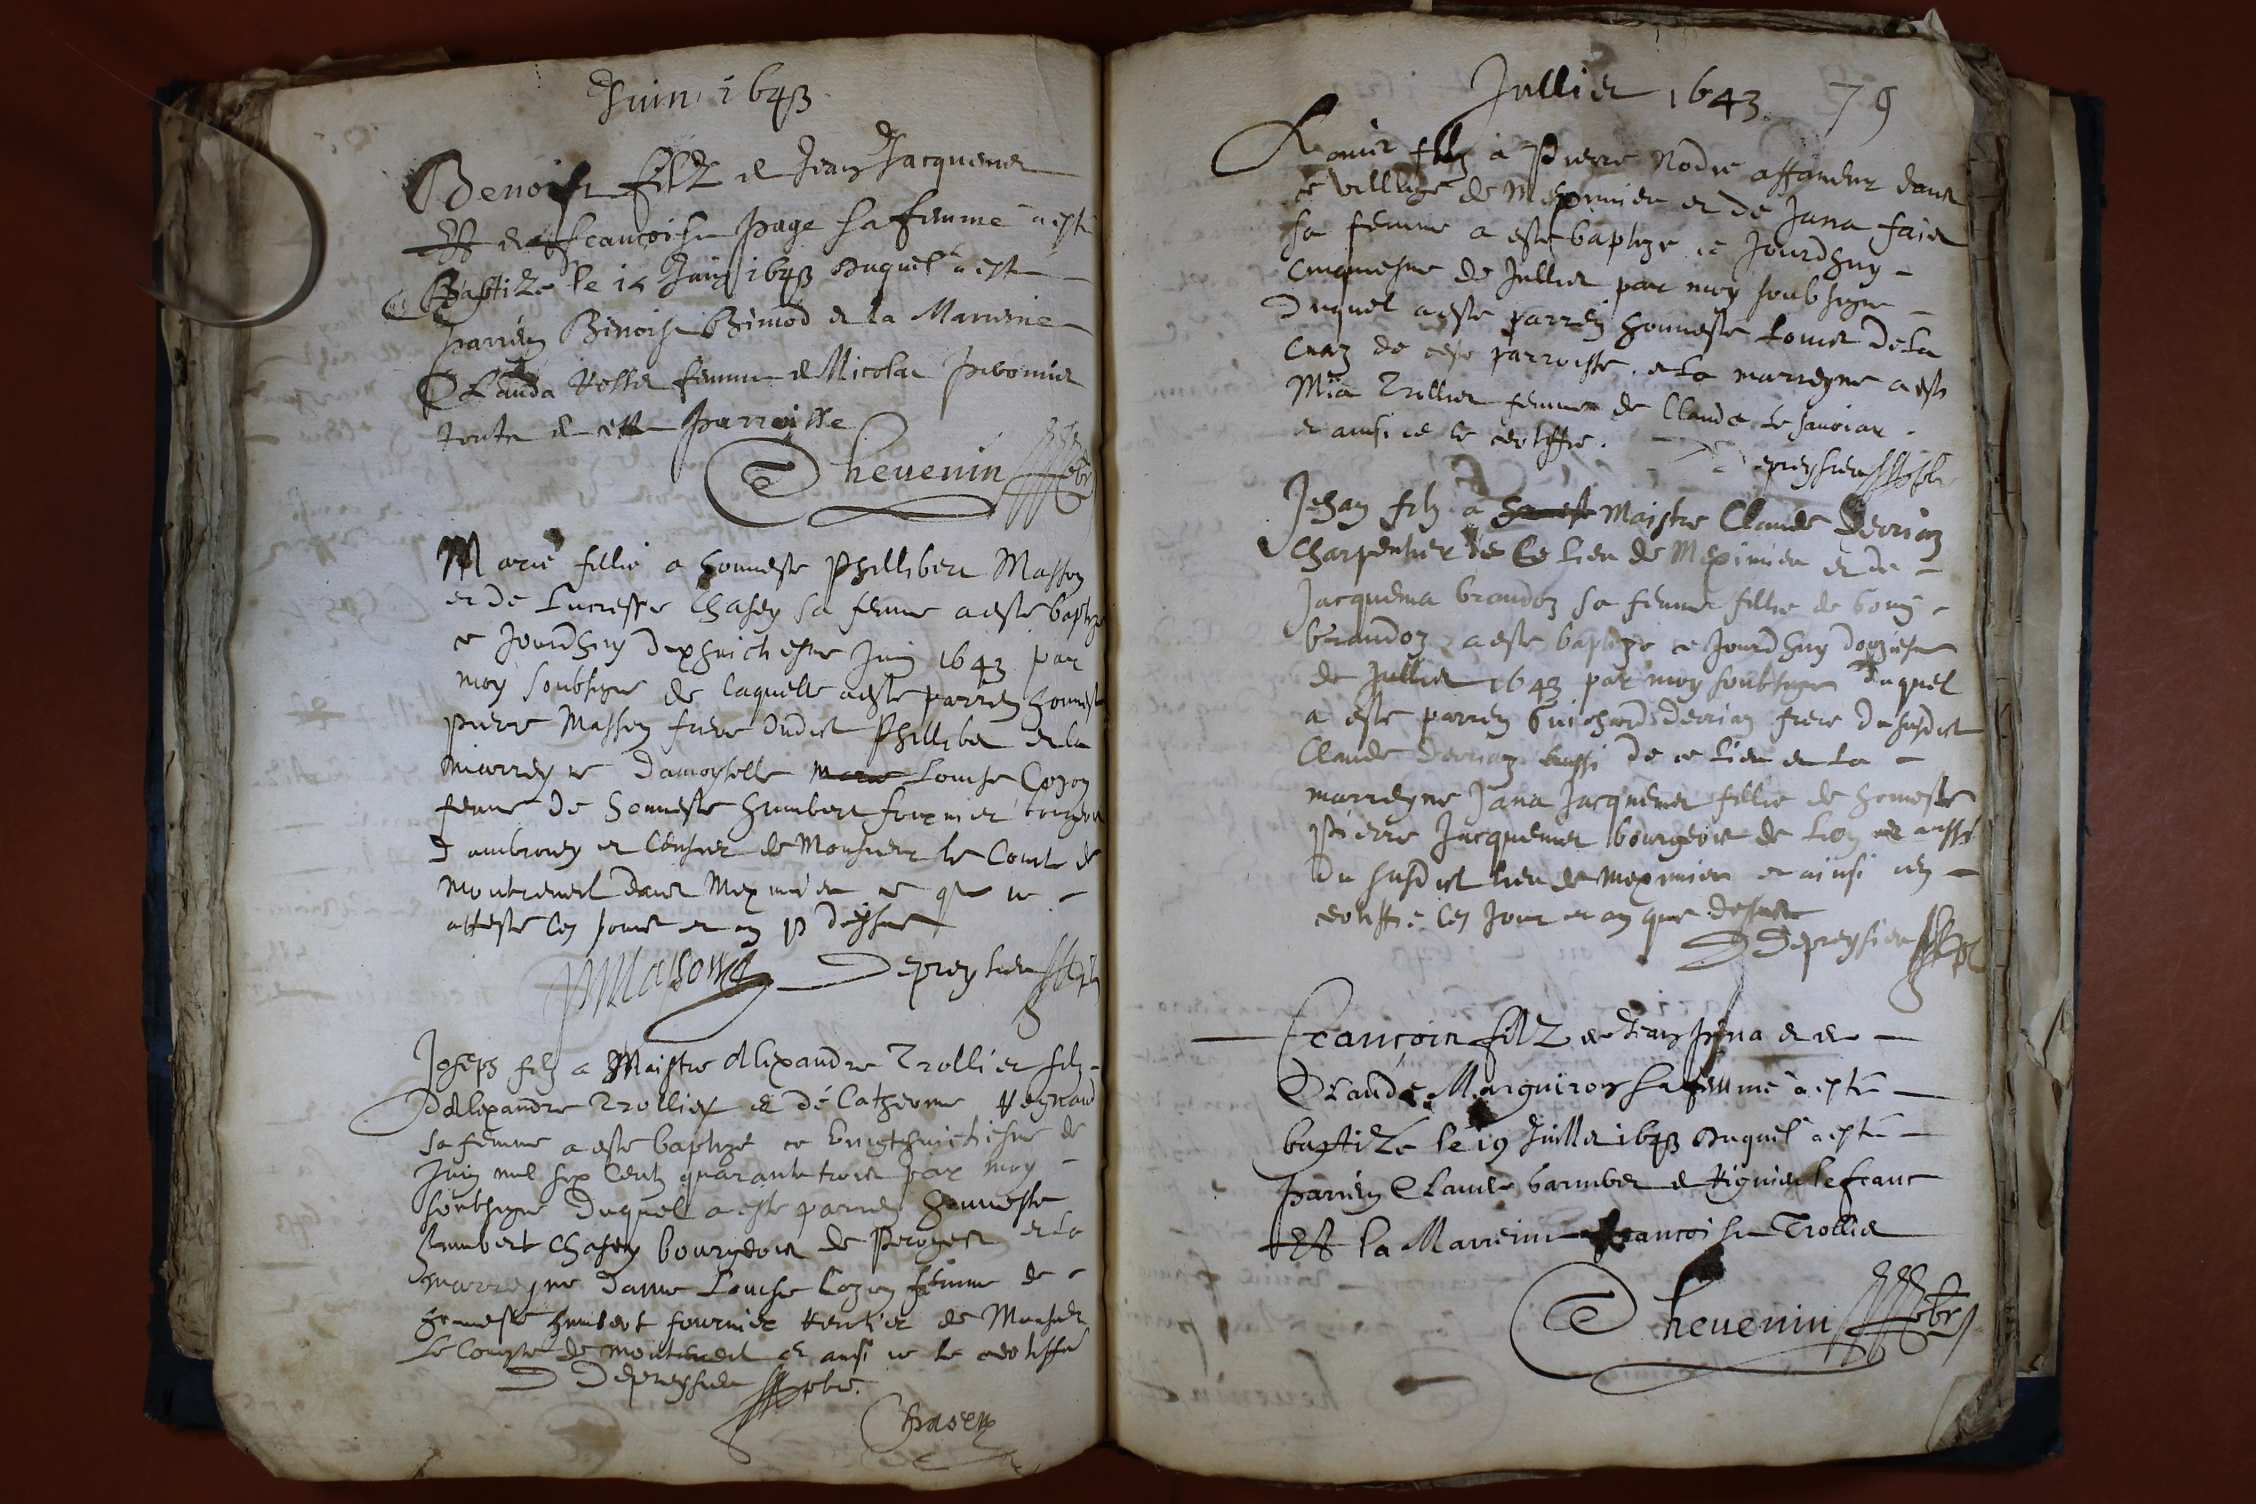 Juin 1643
Benoist filz de Jean Jacquemet
Et de francoise page sa femme a esté
Baptizé le 15 Juin 1643 duquel a esté
parrein Benoist Bimod et la Marreine
Clauda Rosset femme de Nicolas
touts de cette parroisse
Thevenin pbr
Marie fillie a honneste Phillibert Masson
et de Lucresse Chasey sa femme a este baptizé
ce Jourdhuy dixhuictiesme Juin 1643 par
moy soubsigne de laquelle a este parrein honneste
pierre Masson frere dudict Phillibert et la
marreyne damoyselle Marie Louise Cozon
femme de honneste humbert fournier bourgeois
d'ambronay et de Monsieur le Comte de
Montrevel dans Meximieu ce que ie
atteste les jour et an dessus
PMasson Depreyssieu pbre
Joseph filz a Maistre Alexandre Trollier filz
d'Alexandre Trollier et de Catherine Reynaud
sa femme a este baptizé ce vingthuictiesme de
Juin mil six Cent quarante trois par moy
soubsigne duquel a este parrein honneste
humbert Chasey bourgeois de Peroges et la
marreyne dame Louise Cozon femme de
honneste humbert fournier rentier de Monsieur
Le Compte de montrevel et ainsi ie le certiffie
Depreyssieu pbre
Chasey
Jullier 1643 79
filz a Pierre Nodie affaneur dans
ce village de Meximieu et de Jana fais
sa femme a este baptize ce Jourdhuy
cinquiesme de Jullier par moy soubsigne
duquel a este parrein honneste Louis De la
Craz de ceste parroisse et la marreyne a este
Mia Trillier femme de Claude Le savoiar
et ainsi ie le certiffie.
Depreyssieu pbre
Jehan filz a Maistre Claude Derriaz
Charpentier de ce lieu de Meximieu et de
Jacquema brandoz sa femme fillie de
brandoz a este baptize ce Jourdhuy douziesme
de Jullier 1643 par moy soubsigne duquel
a este parrein Guichard Derriaz frere du susdict
Claude Derriaz aussi de ce lieu et la
marreyne Jana Jacquemet fillie de honneste
Pierre Jacquemet bourgeois de Lion et aussi
du susdict lieu de Meximieu et ainsi ie
certiffie les jour et an que dessus
Depreyssieu pbre
Francois filz de Jean et de
Claude Marguiron sa femme a esté
baptizé le 19 Juillet 1643 duquel a esté
parrein Claude barimber de Rignieu le franc
Et la Marreine francoise Trollier
Thevenin pbr